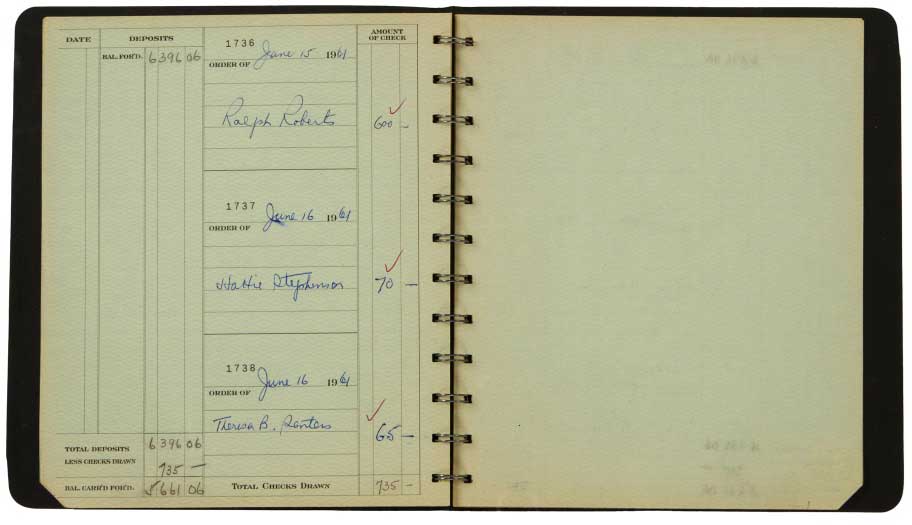 DATE DEPOSITS AMOUNT OF CHECK
BAL. FOR'D. 6396 06
1736 June 15 1961
ORDER OF
Ralph Roberts 600 —
1737 June 16 1961
ORDER OF
Hattie Stephenson 70 —
1738 June 16 1961
ORDER OF
Theresa B. 65 —
TOTAL DEPOSITS 6396 06
LESS CHECKS DRAWN 735 —
BAL. CARR'D FOR'D. 5661 06 TOTAL CHECKS DRAWN 735 —